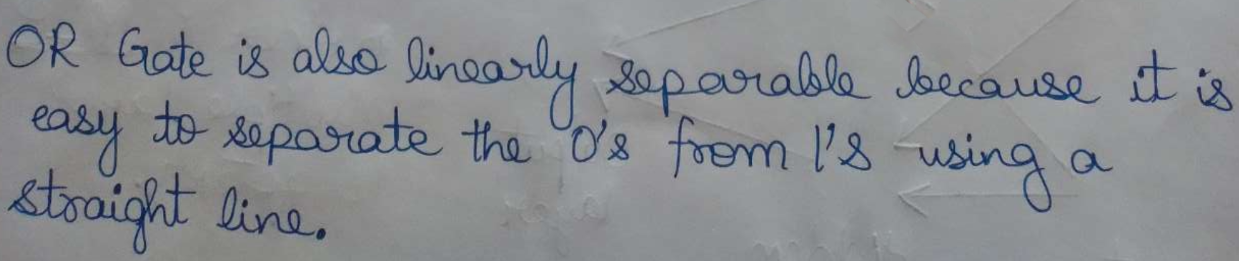 OR Gate is also linearly separable because it is
easy to separate the 0's from 1's using a
straight line.